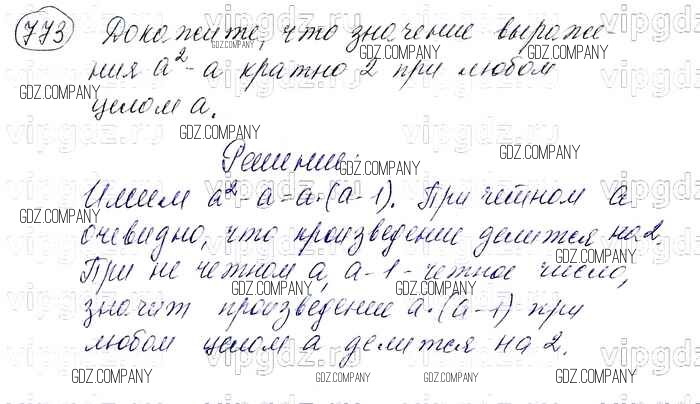 773 Докажите, что значение выраже-
ния a² - a кратно 2 при любом
целом a.
Решение:
Имеем a² - a = a·(a - 1). При четном a
очевидно, что произведение делится на 2.
При не четном a, a - 1 - четное число,
значит произведение a·(a - 1) при
любом целом a делится на 2.